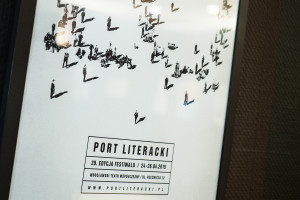 PORT LITERACKI
20. EDYCJA FESTIWALU / 24-26.04.2015
WROCŁAWSKI TEATR WSPÓŁCZESNY / UL. RZEŹNICZA 12
WWW.PORTLITERACKI.PL